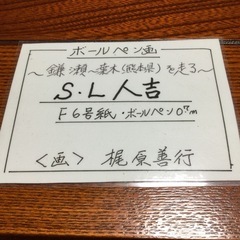 ボールペン画
〜鎌瀬〜葉木(熊本県)を走る〜
S・L人吉
F6号紙・ボールペン0.7m
<画> 梶原善行